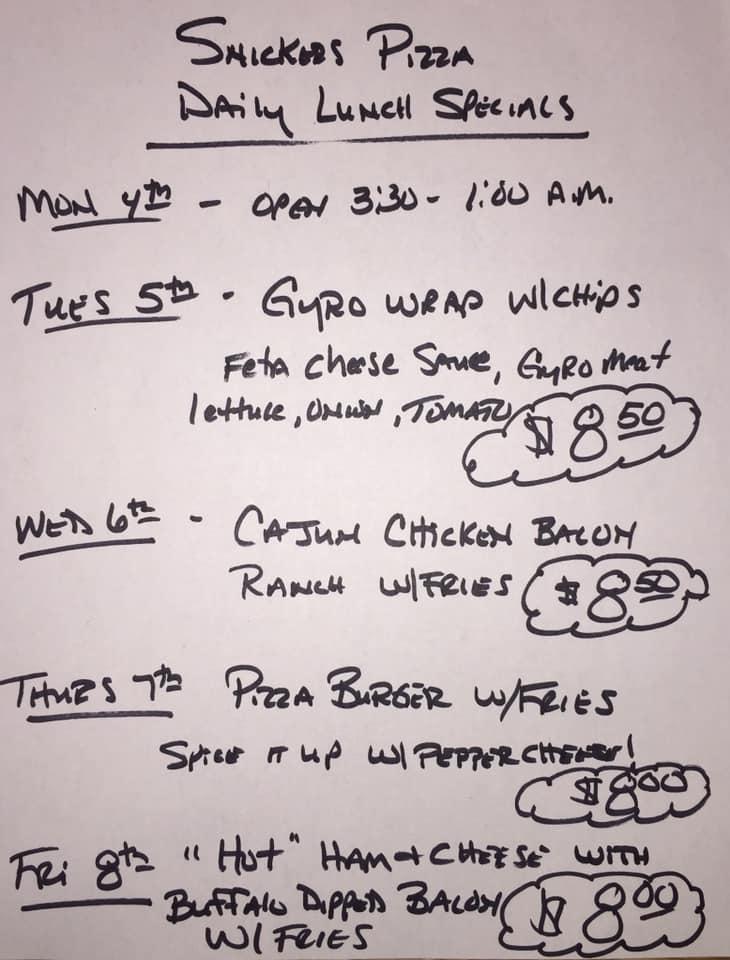 SNICKERS PIZZA
DAILY LUNCH SPECIALS
MON 4th - OPEN 3:30 - 1:00 A.M.
TUES 5th - GYRO WRAP W/CHIPS
Feta Cheese Sauce, GYRO Meat
lettuce, ONION, TOMATO $8.50
WED 6th - CAJUN CHICKEN BACON
RANCH W/FRIES $8.50
THURS 7th PIZZA BURGER W/FRIES
SPICE IT UP W/ PEPPER CHEESE!
$8.00
FRI 8th "HOT" HAM + CHEESE WITH
BUFFALO DIPPED BACON $8.00
W/ FRIES